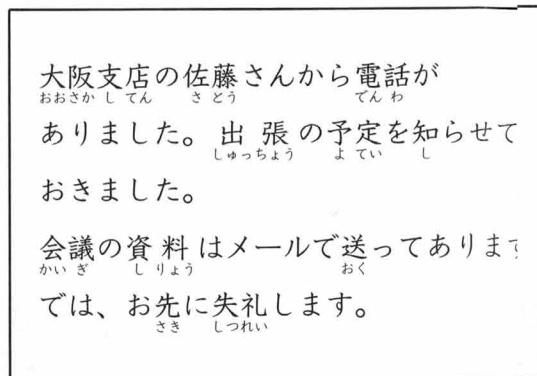 大阪支店の佐藤さんから電話が
おおさかしてん さとう でんわ
ありました。出張の予定を知らせて
しゅっちょう よてい し
おきました。
会議の資料はメールで送ってあります
かいぎ しりょう おく
では、お先に失礼します。
さき しつれい